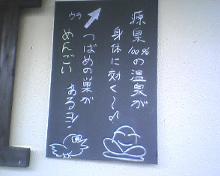 源泉100%の温泉が
身体に効く～♪
つばめの巣が
あるヨ!
めんごい